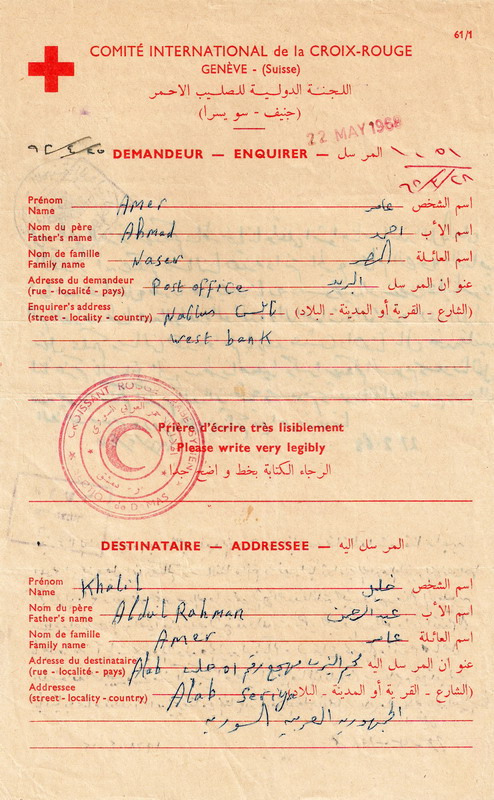 61/1
COMITÉ INTERNATIONAL de la CROIX-ROUGE
GENÈVE - (Suisse)
اللجنة الدولية للصليب الاحمر
(جنيف - سويسرا)
22 MAY 1968
DEMANDEUR — ENQUIRER — المرسل
Prénom
Name Amer عامر اسم الشخص
Nom du père
Father's name Ahmad احمد اسم الأب
Nom de famille
Family name Naser اسم العائلة
Adresse du demandeur
(rue - localité - pays) Post office البريد عنوان المرسل
Enquirer's address
(street - locality - country) Nablus نابلس (الشارع - القرية أو المدينة - البلاد)
West bank
CROISSANT ROUGE
Prière d'écrire très lisiblement
Please write very legibly
الرجاء الكتابة بخط واضح جدا
DESTINATAIRE — ADDRESSEE — المرسل اليه
Prénom
Name Khalil خليل اسم الشخص
Nom du père
Father's name Abdul Rahman عبد الرحمن اسم الأب
Nom de famille
Family name Amer عامر اسم العائلة
Adresse du destinataire
(rue - localité - pays) Alab حلب عنوان المرسل اليه
Addressee
(street - locality - country) Alab Seriya (الشارع - القرية أو المدينة - البلاد)
الجمهورية العربية السورية